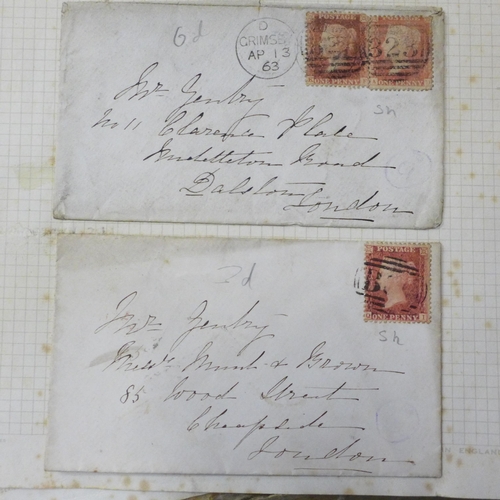 6d
D
GRIMSBY
AP 13
63
POSTAGE
ONE PENNY
323
ONE PENNY
Sh
Mr Gentry
No 11 Clarence Place
Middleton Road
Dalston
London
2d
POSTAGE
ONE PENNY
Sh
Mr Gentry
Messrs Munt & Brown
85 Wood Street
Cheapside
London
ENGLAND